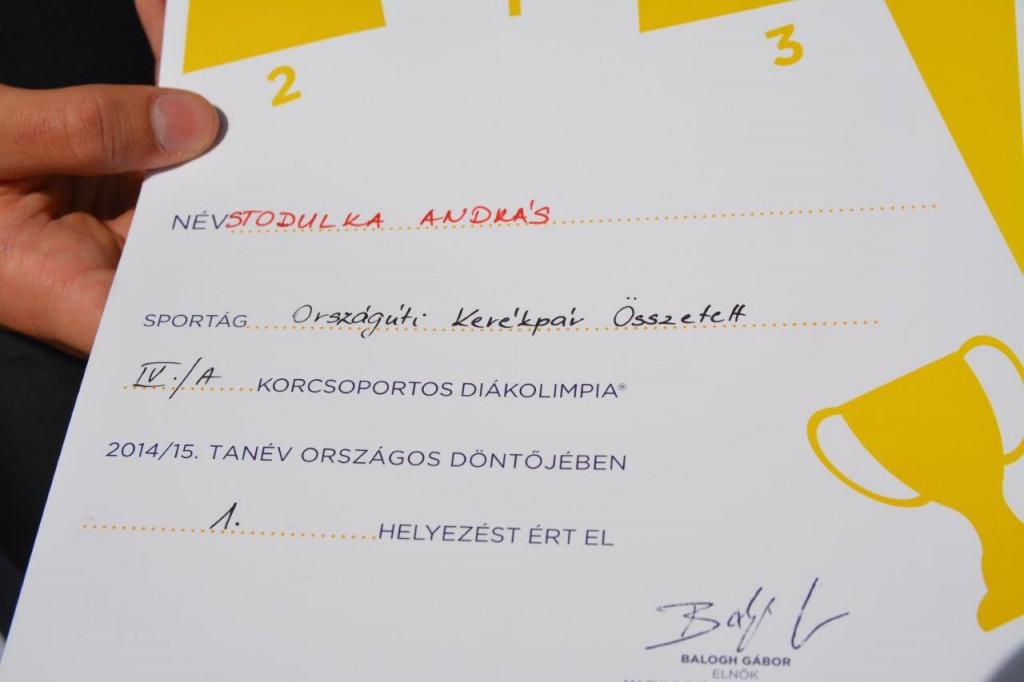 2 3
NÉV STODULKA ANDRÁS
SPORTÁG Országúti Kerékpár Összetett
IV./A KORCSOPORTOS DIÁKOLIMPIA®
2014/15. TANÉV ORSZÁGOS DÖNTŐJÉBEN
1. HELYEZÉST ÉRT EL
BALOGH GÁBOR
ELNÖK